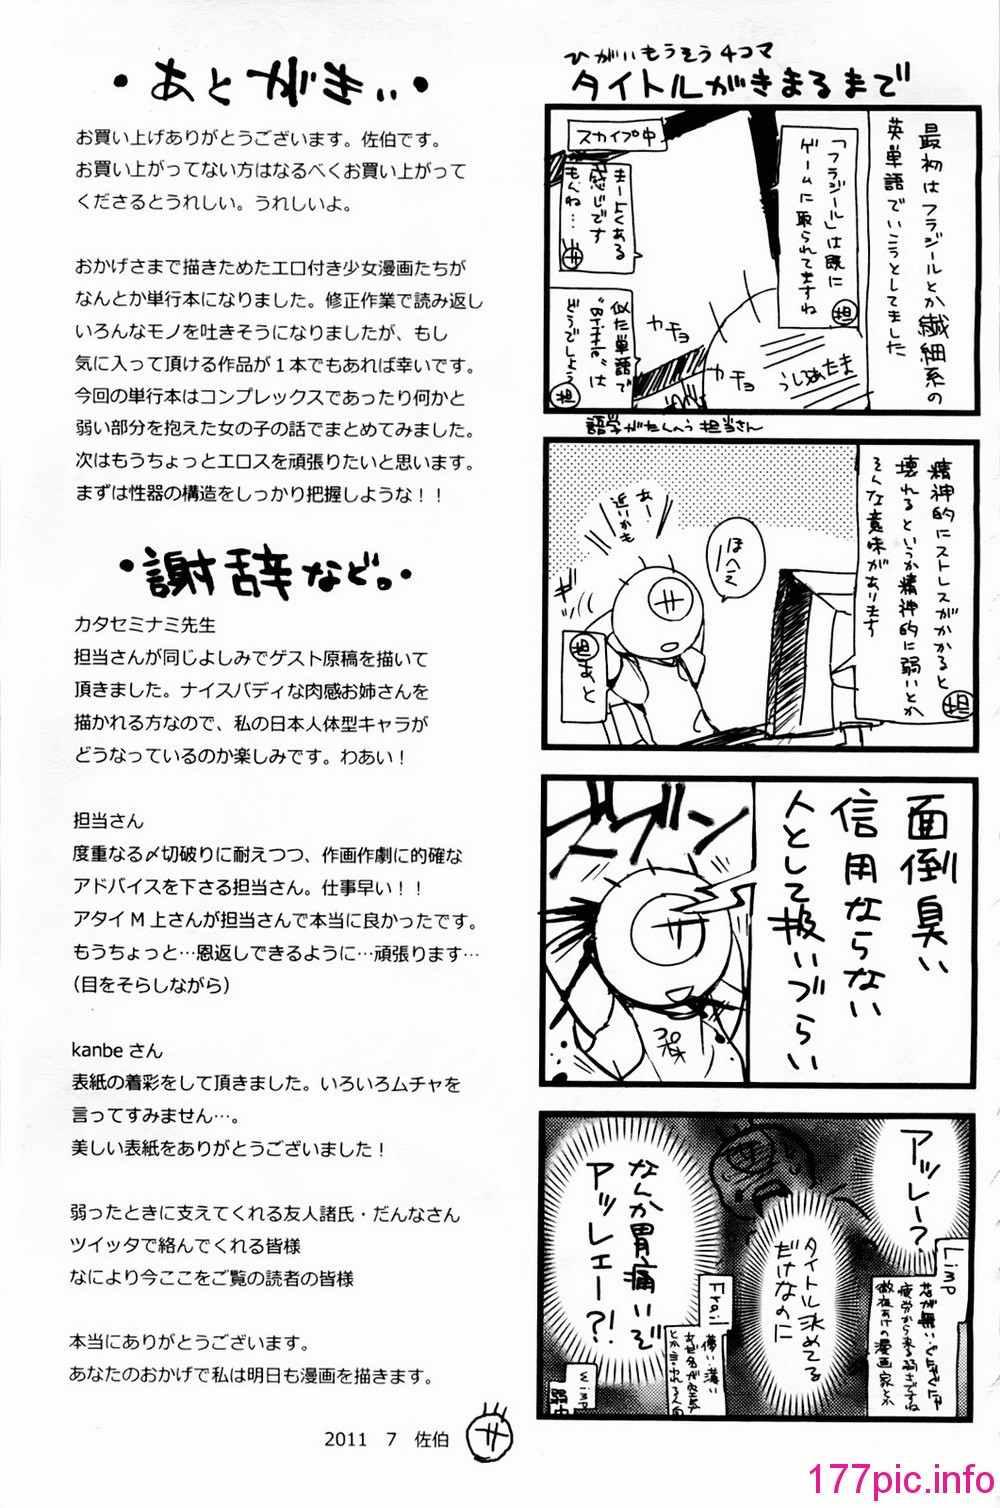 ・あとがきぃ・
お買い上げありがとうございます。佐伯です。
お買い上がってない方はなるべくお買い上がって
くださるとうれしい。うれしいよ。
おかげさまで描きためたエロ付き少女漫画たちが
なんとか単行本になりました。修正作業で読み返し
いろんなモノを吐きそうになりましたが、もし
気に入って頂ける作品が１本でもあれば幸いです。
今回の単行本はコンプレックスであったり何かと
弱い部分を抱えた女の子の話でまとめてみました。
次はもうちょっとエロスを頑張りたいと思います。
まずは性器の構造をしっかり把握しような！！
・謝辞など。・
カタセミナミ先生
担当さんが同じよしみでゲスト原稿を描いて
頂きました。ナイスバディな肉感お姉さんを
描かれる方なので、私の日本人体型キャラが
どうなっているのか楽しみです。わあい！
担当さん
度重なる〆切破りに耐えつつ、作画作劇に的確な
アドバイスを下さる担当さん。仕事早い！！
アタイＭ上さんが担当さんで本当に良かったです。
もうちょっと…恩返しできるように…頑張ります…
（目をそらしながら）
kanbe さん
表紙の着彩をして頂きました。いろいろムチャを
言ってすみません…。
美しい表紙をありがとうございました！
弱ったときに支えてくれる友人諸氏・だんなさん
ツイッタで絡んでくれる皆様
なにより今ここをご覧の読者の皆様
本当にありがとうございます。
あなたのおかげで私は明日も漫画を描きます。
2011　7　佐伯
サ
ひがいもうそう4コマ
タイトルがきまるまで
最初はフラジールとか繊細系の
英単語でいこうとしてました
「フラジール」は既に
ゲームに取られてますね
担
スカイプ中
まーよくある
感じです
もんね…
サ
似た単語で
"Brittle"は
どうでしょう
担
カチョ
カチョ
うしろあたま
語学がたんのう 担当さん
精神的にストレスがかかると
壊れるというか精神的に弱いとか
そんな意味があります
担
ほへえ
あー
近いかも
サ
あと
面倒臭い
信用ならない
人として扱いづらい
アッレー?
タイトル決めてる
だけなのに
なんか胃痛いぞ
アッレェー?!
Limp
芯が無い・ぐにゃぐにゃ
疲労から来る弱さですね
徹夜あけの漫画家とか
Frail
儚い・薄い
Wimp
177pic.info